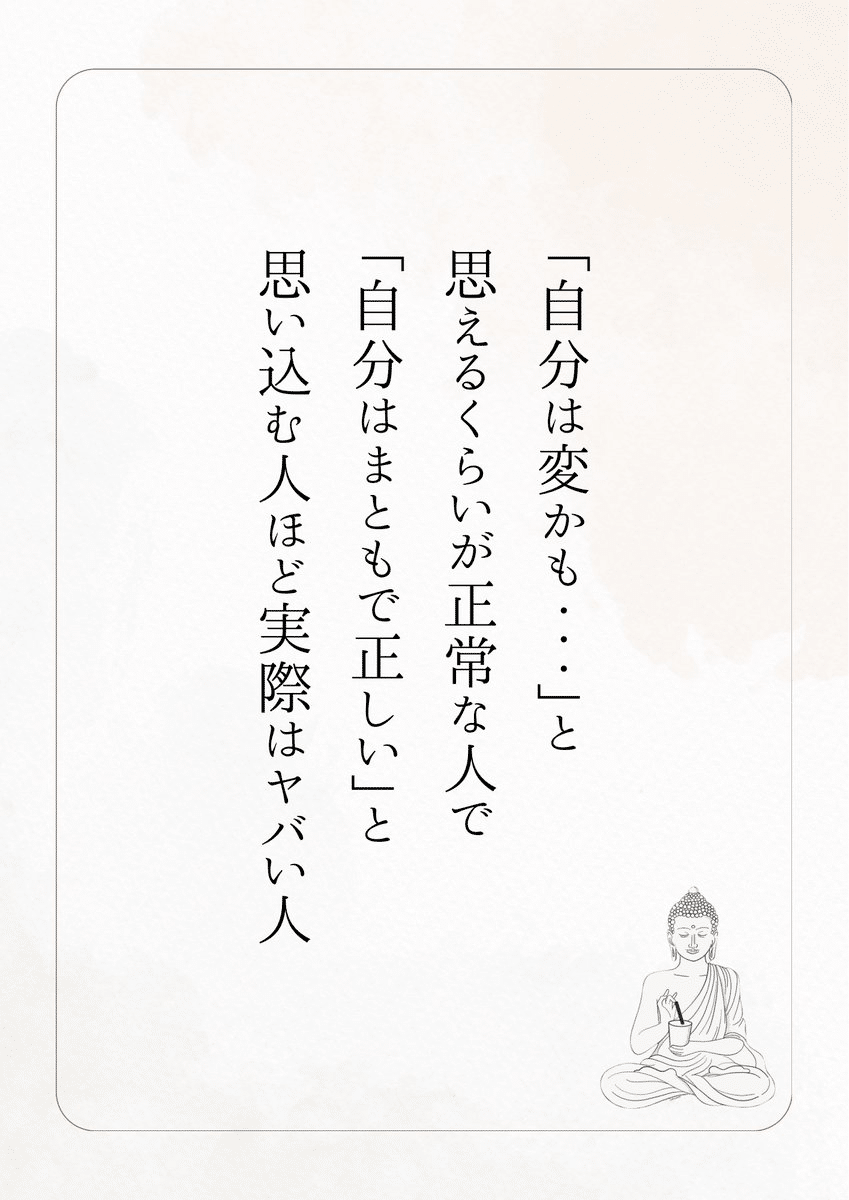 「自分は変かも・・・」と
思えるくらいが正常な人で
「自分はまともで正しい」と
思い込む人ほど実際はヤバい人